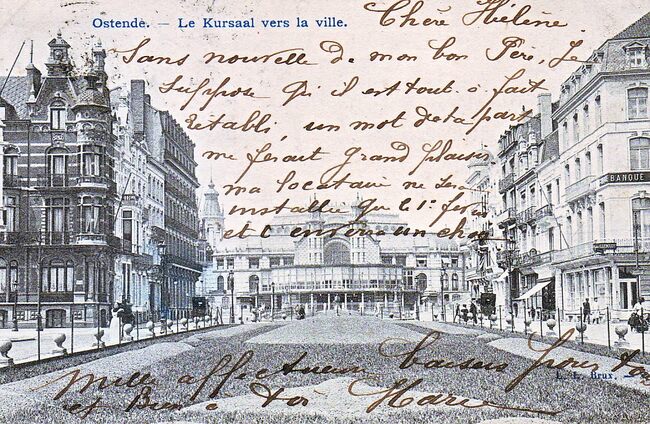 Ostende. — Le Kursaal vers la ville.
Chère Hélène
Sans nouvelle de mon bon Père, Je
suppose qu'il est tout à fait
rétabli, un mot de ta part
me ferait grand plaisir
ma locataire ne sera
installée que le 1er
et t'enverra un
BANQUE
Mille affectueux baisers pour toi
et
toi Marie
L. L. Brux.